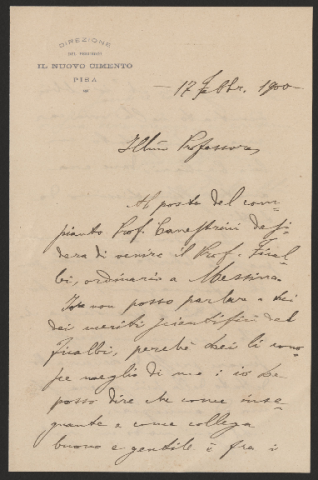 DIREZIONE
DEL PERIODICO
IL NUOVO CIMENTO
PISA
17 Febbr. 1900
Ill.mo Professore,
Al posto del com-
pianto Prof. Canestrini desi-
dera di venire il Prof. Fical-
bi, ordinario a Messina.
Io non posso parlare a Lei
dei meriti scientifici del
Ficalbi, perchè Lei li cono-
sce meglio di me: io Le
posso dire che come inse-
gnante e come collega
buono e gentile è fra i